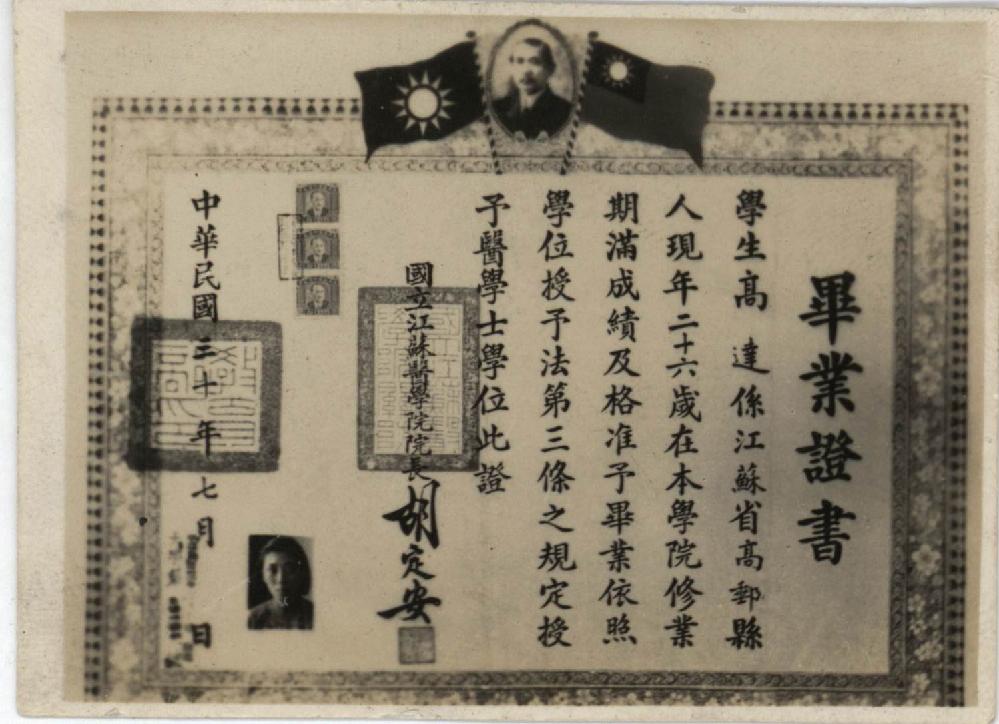 畢業證書
學生高達係江蘇省高郵縣
人現年二十六歲在本學院修業
期滿成績及格准予畢業依照
學位授予法第三條之規定授
予醫學士學位此證
國立江蘇醫學院院長胡定安
中華民國三十年七月日